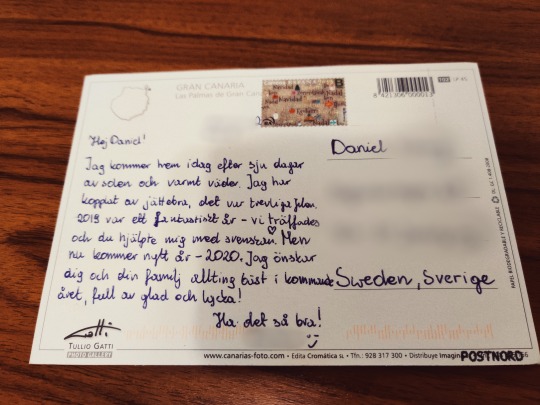 GRAN CANARIA
Las Palmas de Gran Can
Navidad
B
102
8 421306 000013
Hej Daniel!
Jag kommer hem idag efter sju dagar
av solen och varmt väder. Jag har
kopplat av jättebra, det var trevliga
2019 var ett fantastiskt år - vi träffades
och du hjälpte mig med svenskan. Men
nu kommer nytt år - 2020. Jag önskar
dig och din familj allting bäst i kommande
året, full av glad och lycka!
Ha det så bra!
Daniel
Sweden, Sverige
TULLIO GATTI
PHOTO GALLERY
www.canarias-foto.com • Edita Cromática SL • Tfn.: 928 317 300 • Distribuye Imagin
POSTNORD
PAPEL BIODEGRADABLE Y RECICLABLE